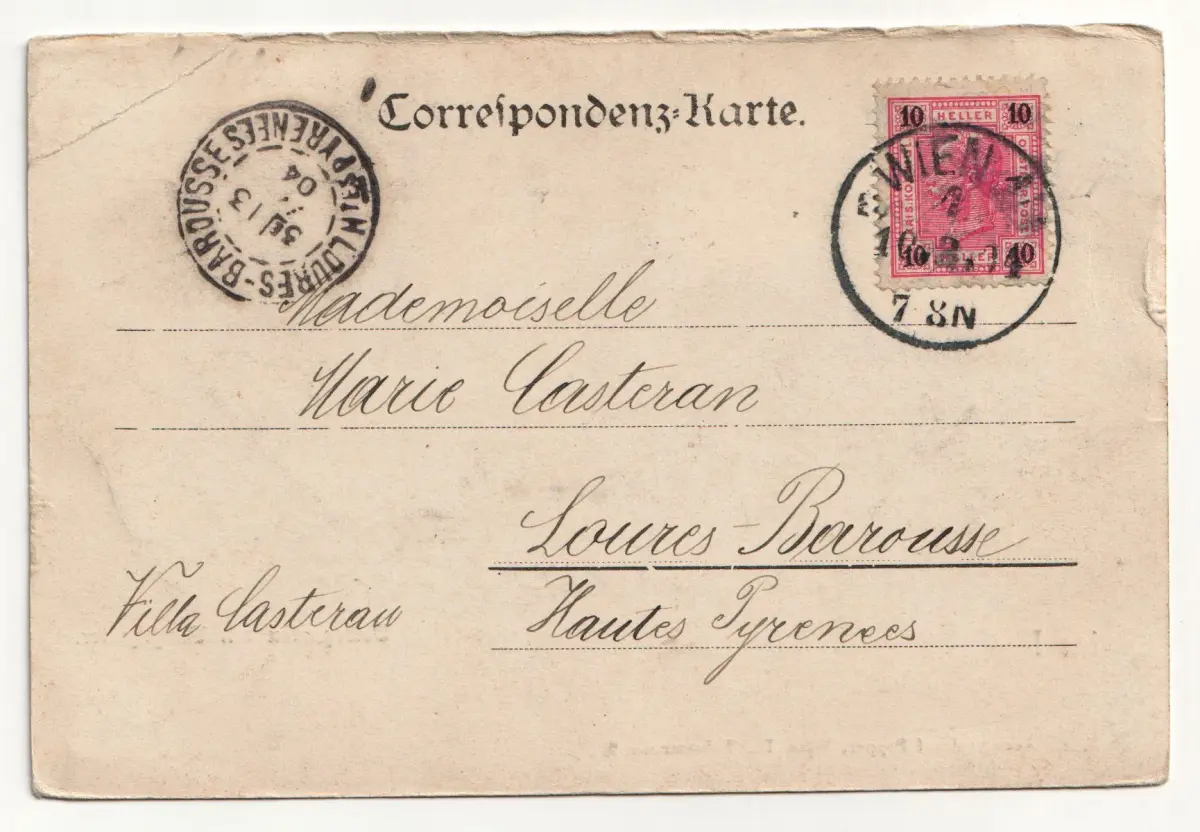 Correspondenz-Karte.
10 HELLER 10
10 10
WIEN
7 8N
LOURES-BAROUSSE
PYRENEES
13
04
Mademoiselle
Marie Casteran
Loures-Barousse
Villa Casteran
Hautes Pyrenees